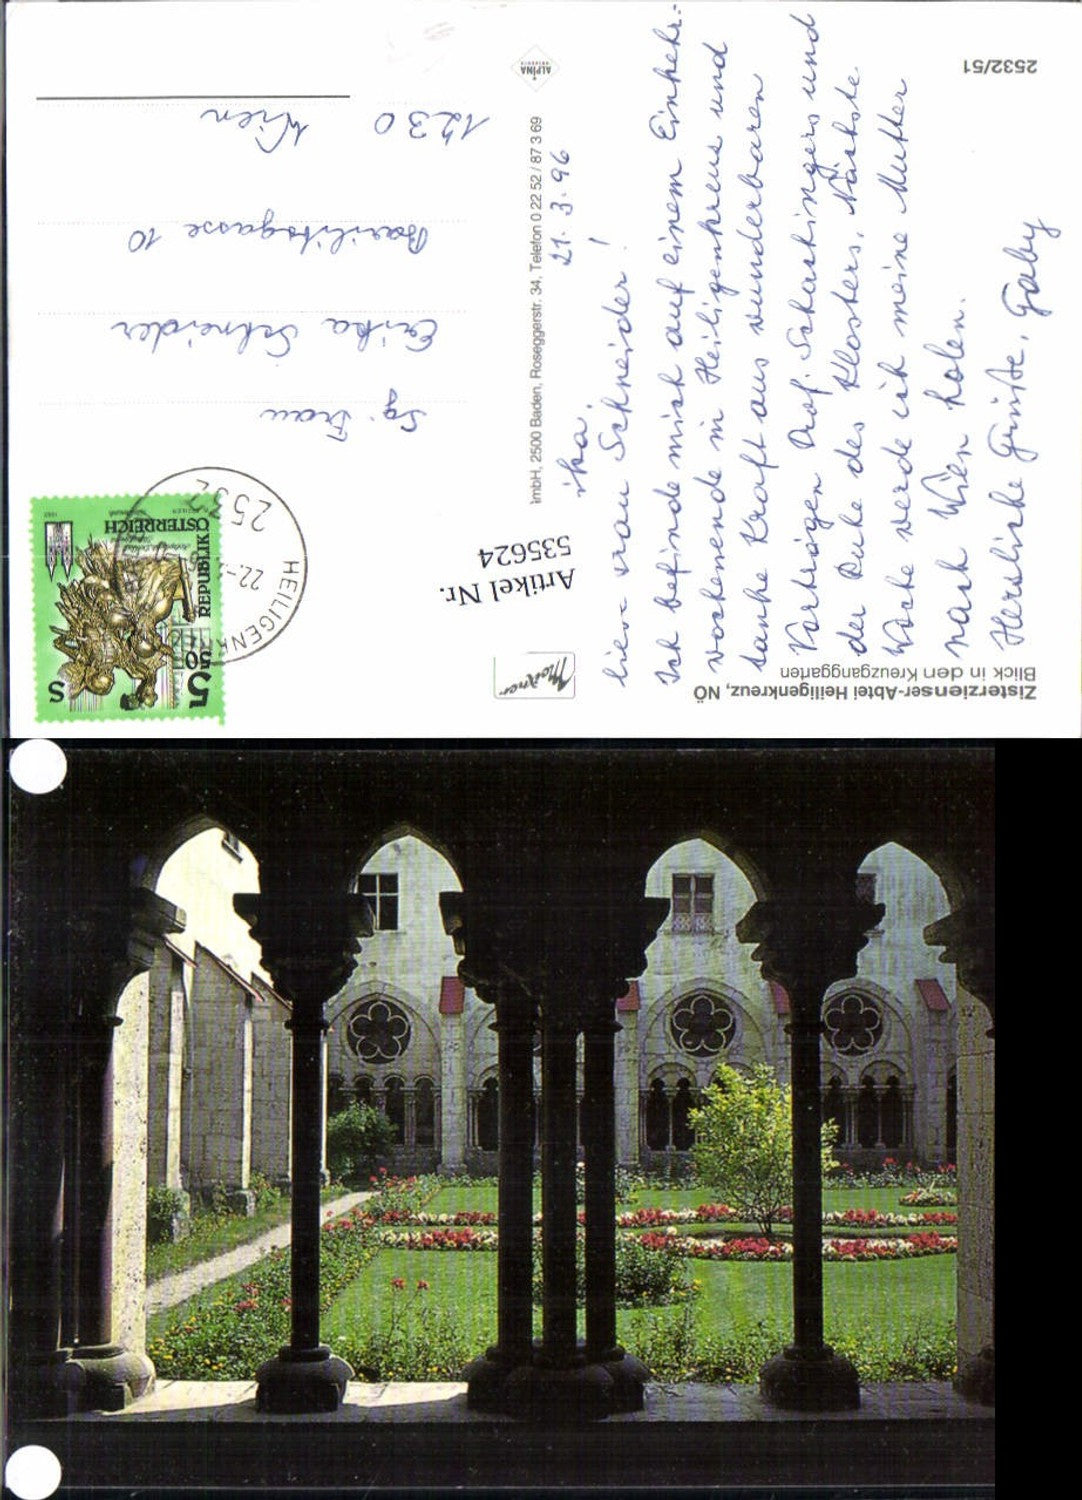 Zisterzienser-Abtei Heiligenkreuz, NÖ
Blick in den Kreuzganggarten
2532/51
ALPINA
mbH, 2500 Baden, Roseggerstr. 34, Telefon 0 22 52 / 87 3 69
21. 3. 96
Frau Schneider!
Ich befinde mich auf einem Einkehr-
wochenende in Heiligenkreuz und
tanke Kraft aus wunderbaren
Vorträgen Prof. Schaschingers und
der Ruhe des Klosters. Nächste
Woche werde ich meine Mutter
nach Wien holen.
Herzliche Grüße, Gaby
Sg. Frau
Erika Schneider
10
1230 Wien
REPUBLIK ÖSTERREICH
5 50
S
HEILIGENK
2532
22.-
Artikel Nr.
535624
Meixner